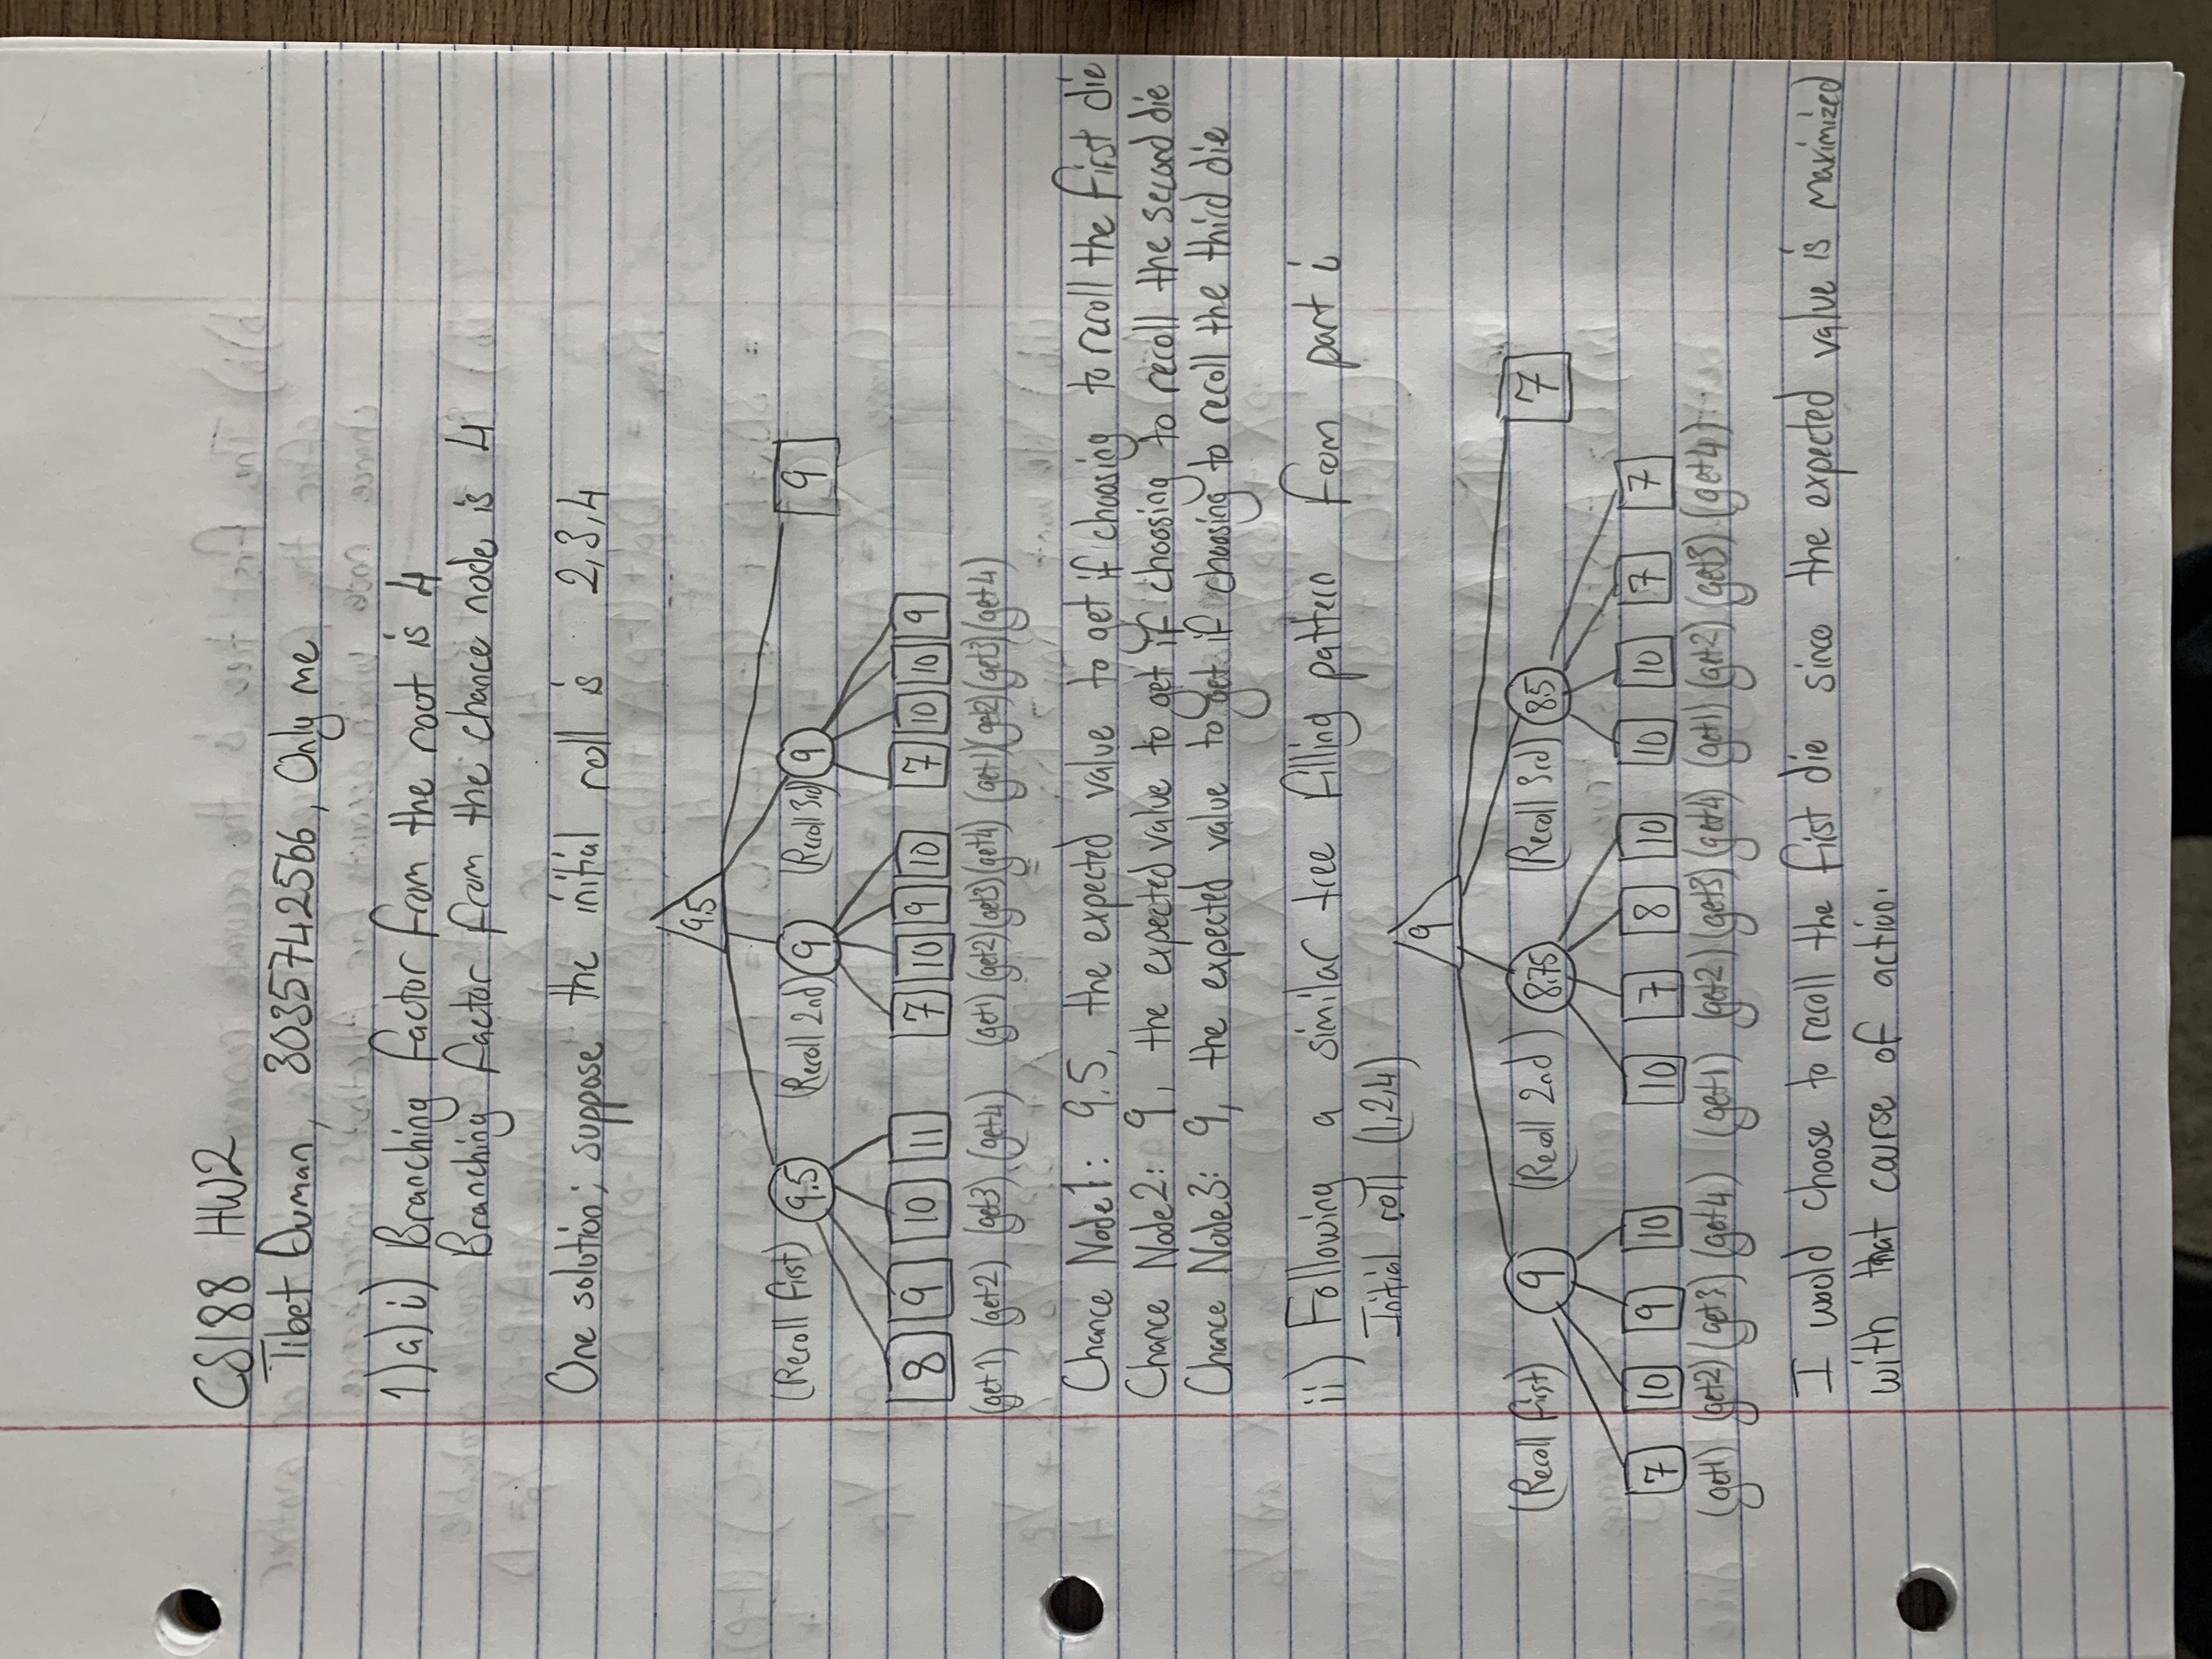 CS188 HW2
Tibet Duman, 3035742566, Only me
1)a)i) Branching factor from the root is 4
Branching factor from the chance node is 4
One solution; suppose the initial roll is 2,3,4
9.5
(Reroll first) 9.5 (Reroll 2nd) 9 (Reroll 3rd) 9 9
8 9 10 11 7 10 9 10 7 10 10 9
(get 1) (get 2) (get 3) (get 4) (get 1) (get 2) (get 3) (get 4) (get 1) (get 2) (get 3) (get 4)
Chance Node1: 9.5, the expected value to get if choosing to reroll the first die
Chance Node2: 9, the expected value to get if choosing to reroll the second die
Chance Node3: 9, the expected value to get if choosing to reroll the third die
ii) Following a similar tree filling pattern from part i
Initial roll (1,2,4)
9
(Reroll first) 9 (Reroll 2nd) 8.75 (Reroll 3rd) 8.5 7
7 10 9 10 10 7 8 10 10 10 7 7
(get 1) (get 2) (get 3) (get 4) (get 1) (get 2) (get 3) (get 4) (get 1) (get 2) (get 3) (get 4)
I would choose to reroll the first die since the expected value is maximized
with that course of action.